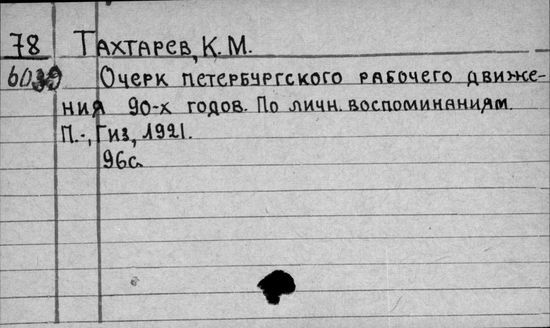 78 Тахтарев, К. М.
6039 Очерк петербургского рабочего движе-
ния 90-х годов. По личн. воспоминаниям.
П.-, Гиз, 1921.
96с.